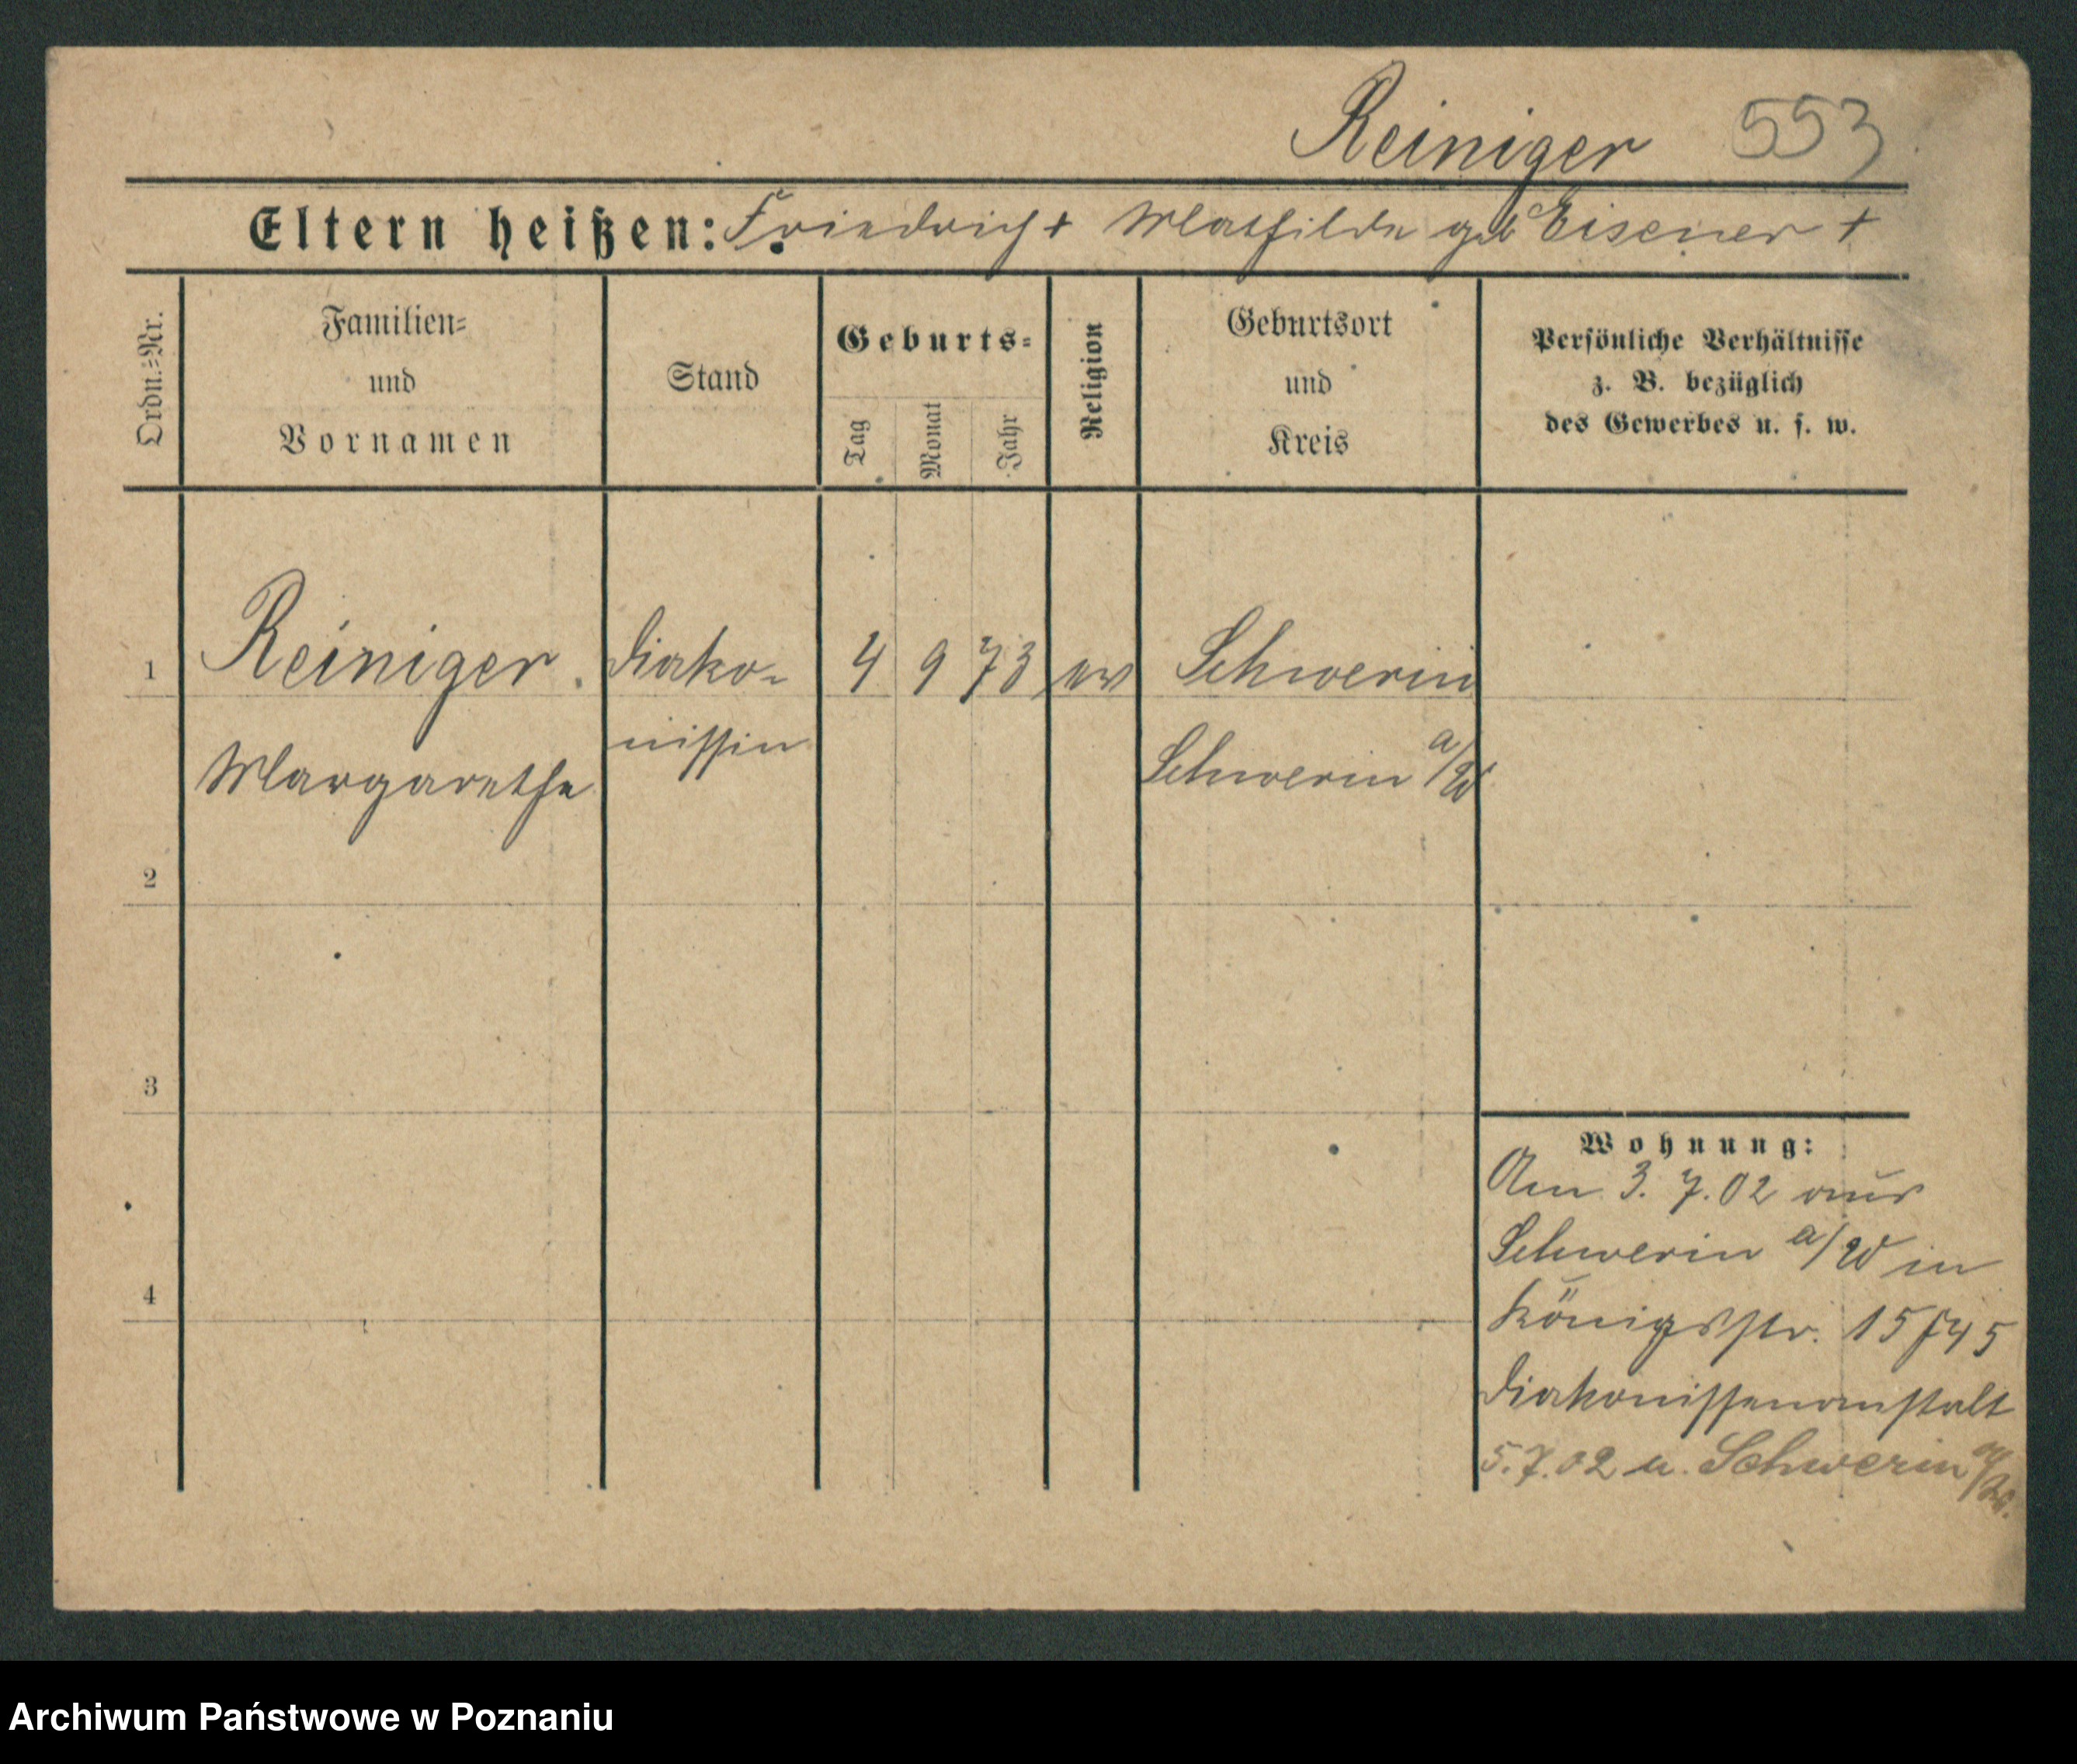 Reiniger 553
Eltern heißen: Friedrich + Mathilde geb Eisener +
Ordn.=Nr.
Familien=
und
Vornamen
Stand
Geburts=
Tag
Monat
Jahr
Religion
Geburtsort
und
Kreis
Persönliche Verhältnisse
z. B. bezüglich
des Gewerbes u. s. w.
1 Reiniger. Diako- 4 9 73 ev Schwerin
nissin
Margarethe
Schwerin a/W
2
3
4
Wohnung:
Am 3. 7. 02 aus
Schwerin a/W in
Königsstr. 15/45
Diakonissenanstalt
5.7.02 n. Schwerin a/W.
Archiwum Państwowe w Poznaniu